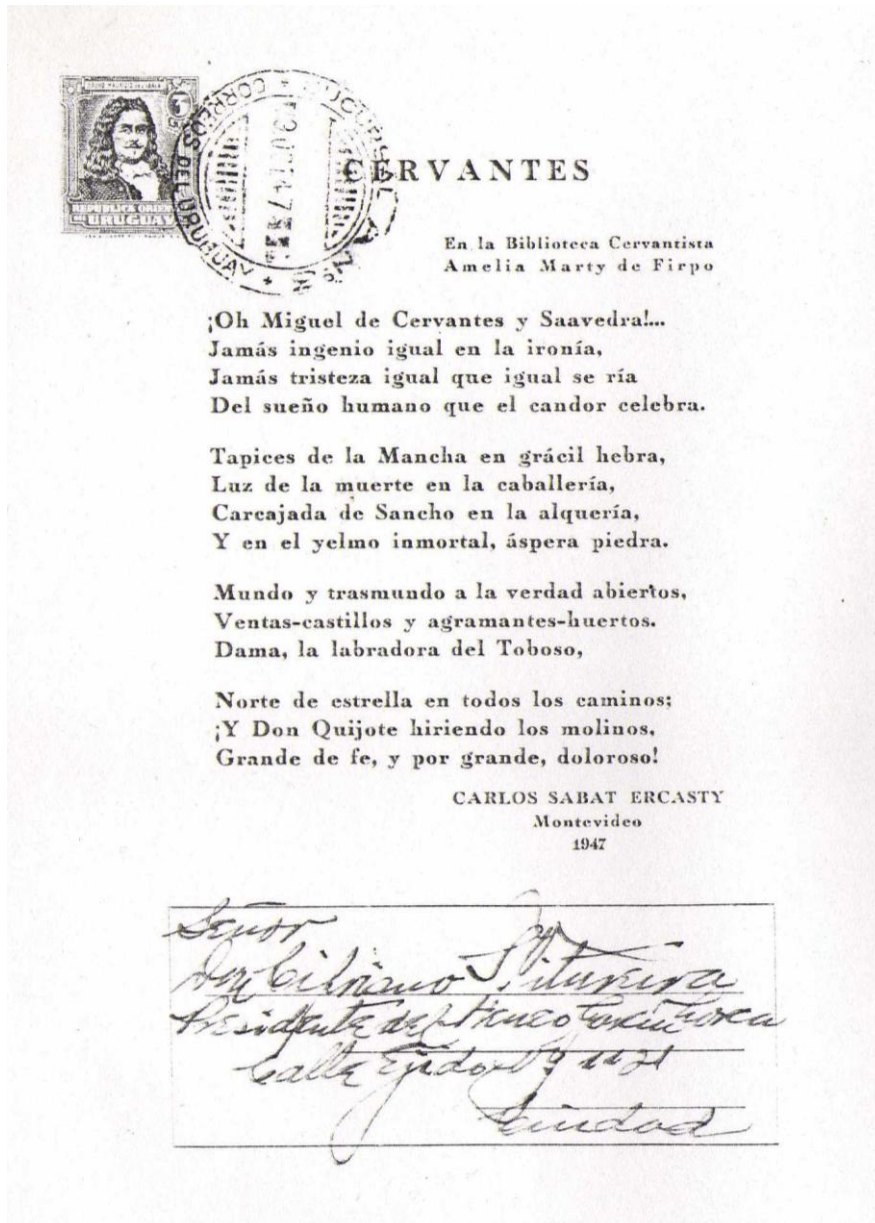 REPUBLICA ORIENTAL
DEL URUGUAY
CORREOS DEL URUGUAY
CERVANTES
En la Biblioteca Cervantista
Amelia Marty de Firpo
¡Oh Miguel de Cervantes y Saavedra!...
Jamás ingenio igual en la ironía,
Jamás tristeza igual que igual se ría
Del sueño humano que el candor celebra.
Tapices de la Mancha en grácil hebra,
Luz de la muerte en la caballería,
Carcajada de Sancho en la alquería,
Y en el yelmo inmortal, áspera piedra.
Mundo y trasmundo a la verdad abiertos,
Ventas-castillos y agramantes-huertos.
Dama, la labradora del Toboso,
Norte de estrella en todos los caminos;
¡Y Don Quijote hiriendo los molinos,
Grande de fe, y por grande, doloroso!
CARLOS SABAT ERCASTY
Montevideo
1947
Señor
Don Cipriano S. Vitureira
Presidente del Ateneo García Lorca
Calle Ejido Nº 1121
Ciudad